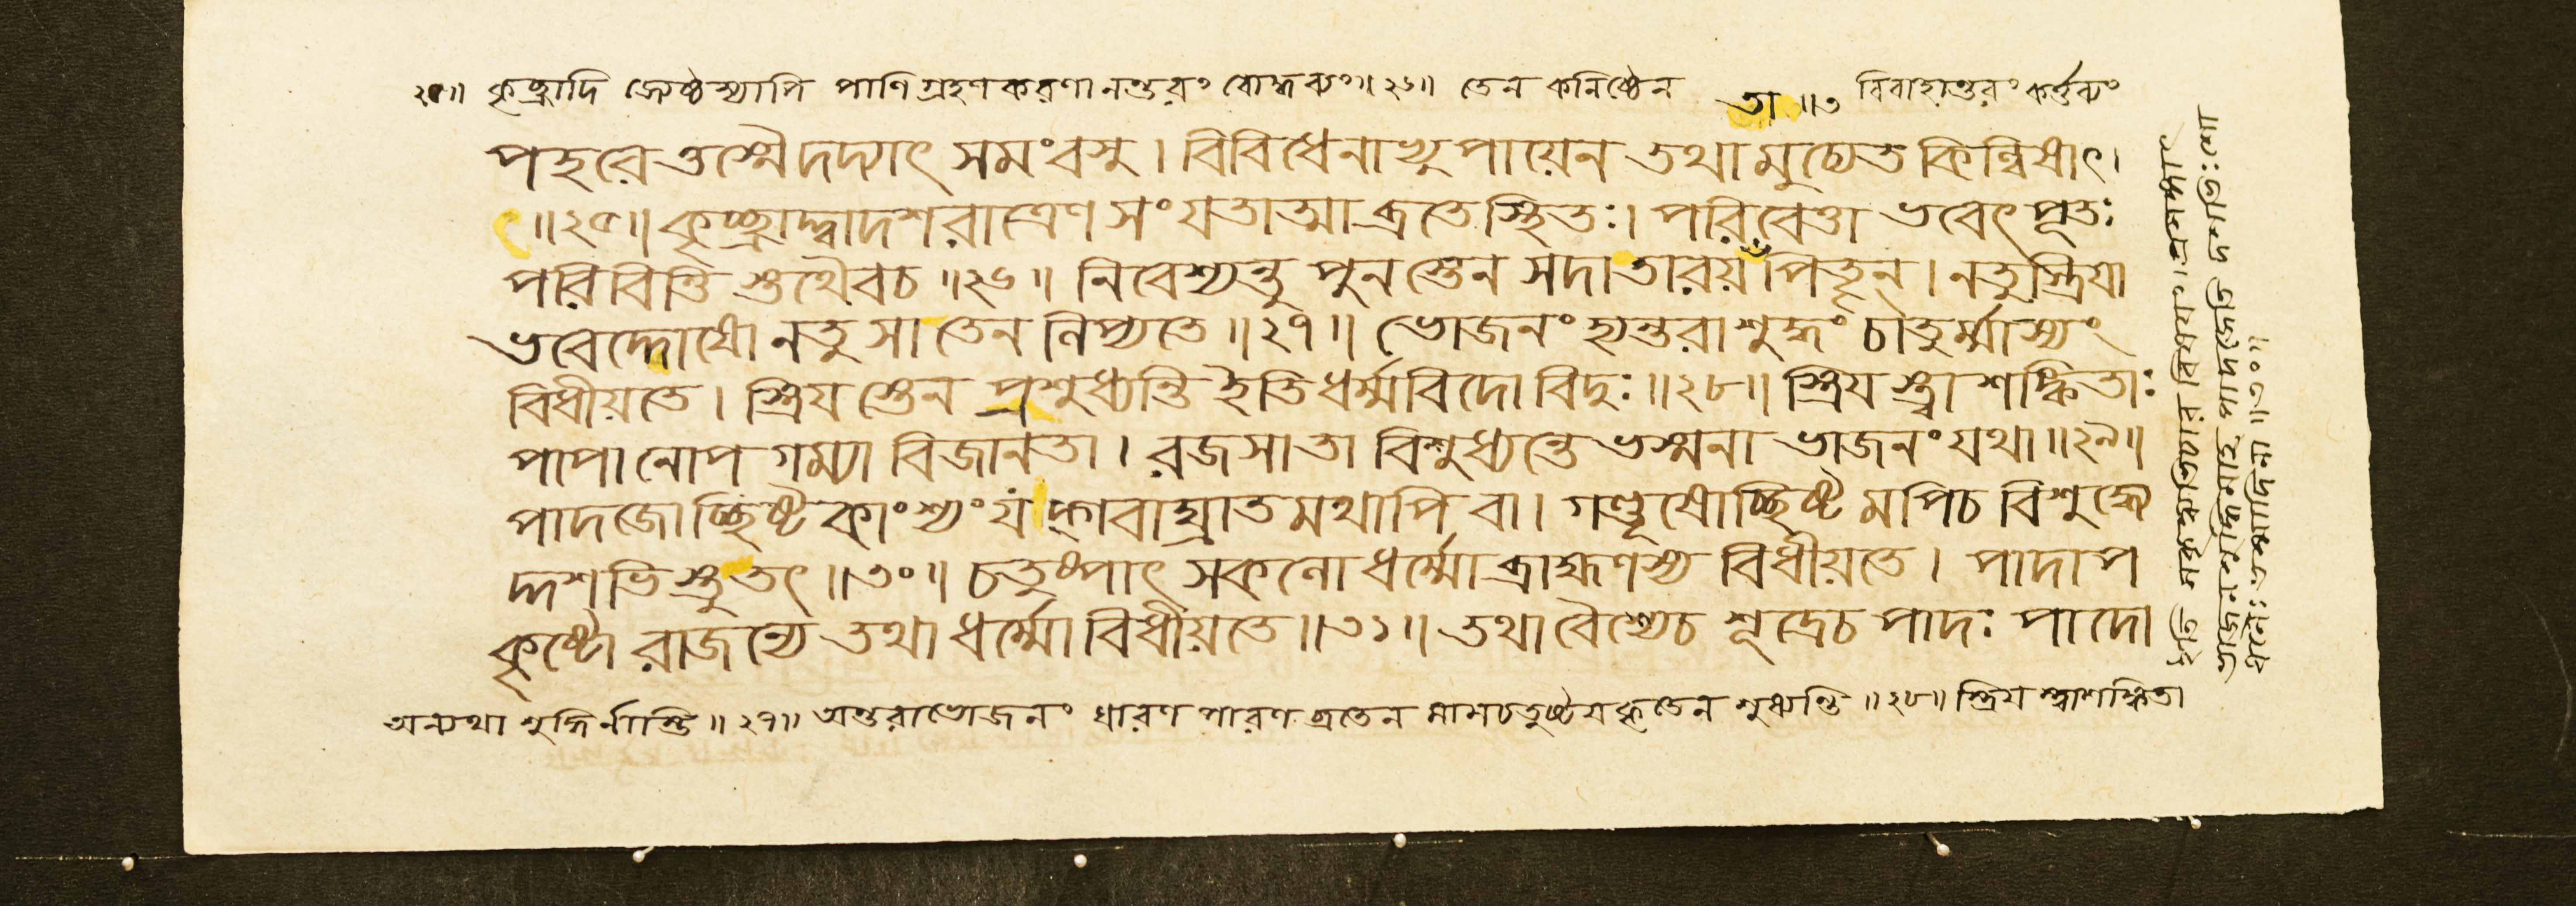 ২৫॥ কৃচ্ছ্রাদি জ্যেষ্ঠস্যাপি পাণিগ্রহণকরণানন্তরং বোদ্ধব্যং॥২৬॥ তেন কনিষ্ঠেন তা ॥৩ বিবাহান্তরং কর্ত্তব্যং
পহরেত্তস্মৈ দদ্যাৎ সমং বসু। বিবিধেনাভ্যুপায়েন তথা মুচ্যেত কিল্বিষাৎ।
ৎ॥২৫॥ কৃচ্ছ্রাদ্দ্বাদশরাত্রেণ সংযতাত্মা ব্রতে স্থিতঃ। পরিবেত্তা ভবেৎ পূতঃ
পরিবিত্তি স্তথৈবচ॥২৬॥ নিবেশ্যন্তু পুনস্তেন সদা তারয় পিতৄন। নতু স্ত্রিযা
ভবেদ্দোষো নতু সা তেন লিপ্যতে॥২৭॥ ভোজনং হ্যন্তরাশুদ্ধং চাতুর্ম্মাস্যং
বিধীয়তে। স্ত্রিয স্তেন প্রশুধ্যন্তি ইতি ধর্ম্মবিদো বিদুঃ॥২৮॥ স্ত্রিয স্ত্বাশঙ্কিতাঃ
পাপা নোপগম্যা বিজানতা। রজসা তা বিশুধ্যন্তে ভস্মনা ভাজনং যথা॥২৯॥
পাদজোচ্ছিষ্টকাংশ্যং য বাঘ্রাতমথাপি বা। গণ্ডূষোচ্ছিষ্টমপিচ বিশুদ্ধ্যে
দ্দশভিস্তু তৎ॥৩০॥ চতুষ্পাৎ সকলো ধর্ম্মো ব্রাহ্মণস্য বিধীয়তে। পাদাপ
কৃষ্টো রাজন্যে তথা ধর্ম্মো বিধীয়তে॥৩১॥ তথা বৈশ্যেচ শূদ্রেচ পাদঃ পাদো
অন্যথা শুদ্ধির্নাস্তি॥২৭॥ অন্তরাভোজনং ধারণ পারণ ব্রতেন মাসচতুষ্টয়কৃতেন শুধ্যন্তি॥২৮॥ স্ত্রিয স্ত্বাশঙ্কিতা
ইতি বিষয়াৎ
দশভিঃ
॥৩০॥